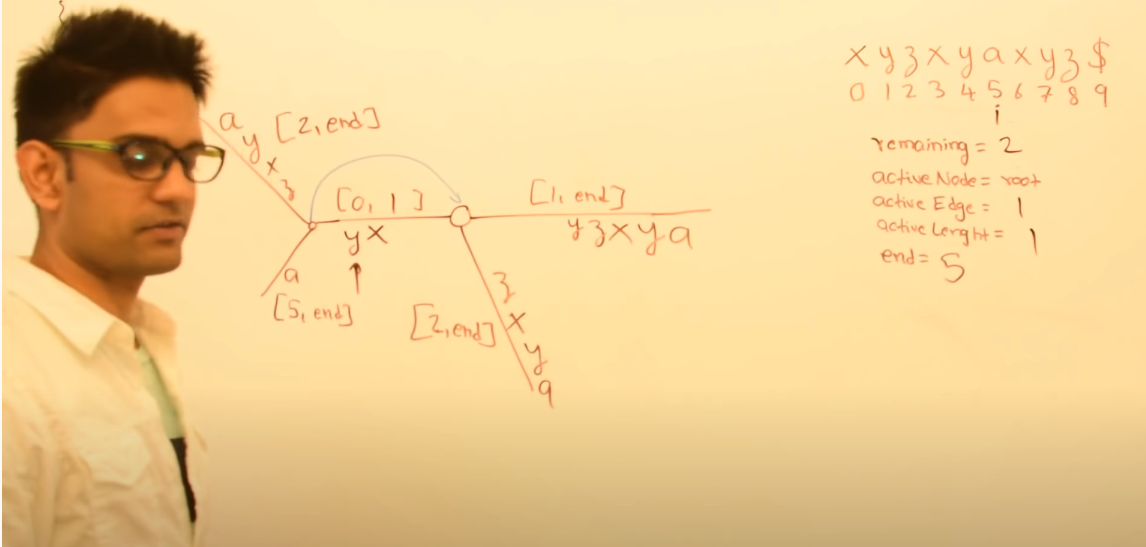 x y z x y a x y z $
0 1 2 3 4 5 6 7 8 9
i
remaining = 2
activeNode = root
active Edge = 1
active Lenght = 1
end = 5
a y x z
[2, end]
[0, 1]
y x
a
[5, end]
[1, end]
y z x y a
[2, end]
z x y a